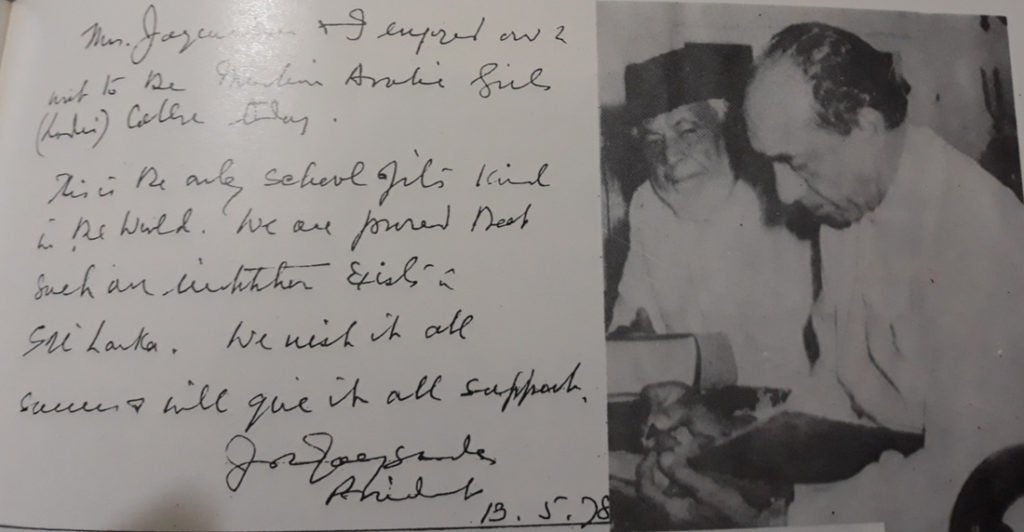 Mrs. Jayewardene & I enjoyed our
visit to the Muslim Arabic Girls
(Ladies) College today.
This is the only school of its kind
in the World. We are proud that
such an institution exists in
Sri Lanka. We wish it all
success & will give it all support.
President
13. 5. 78